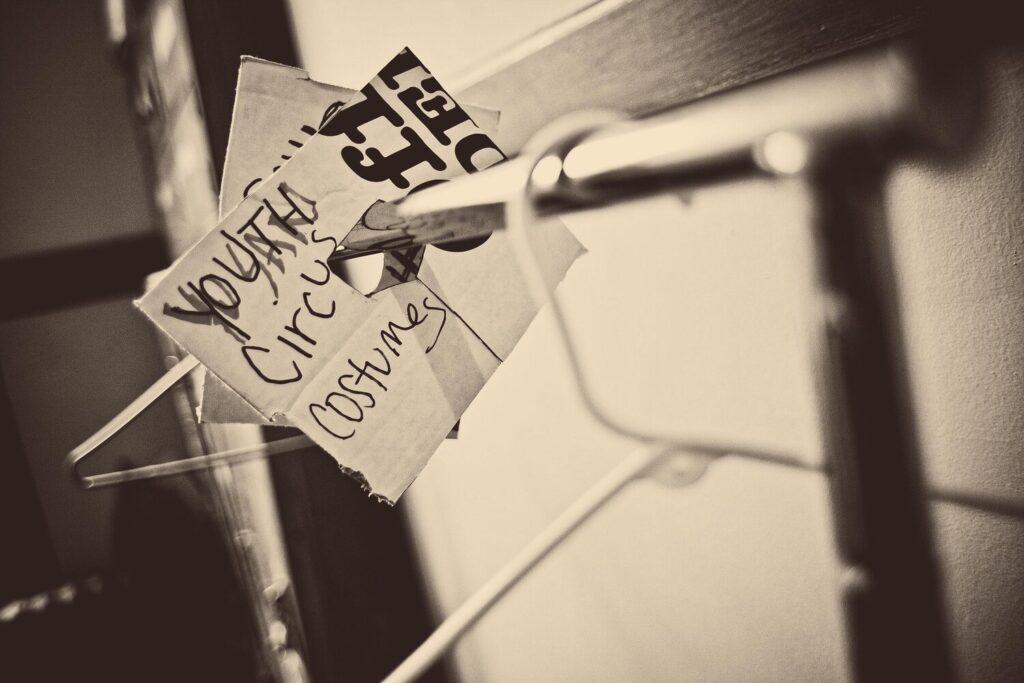 YOUTH
Circus
costumes